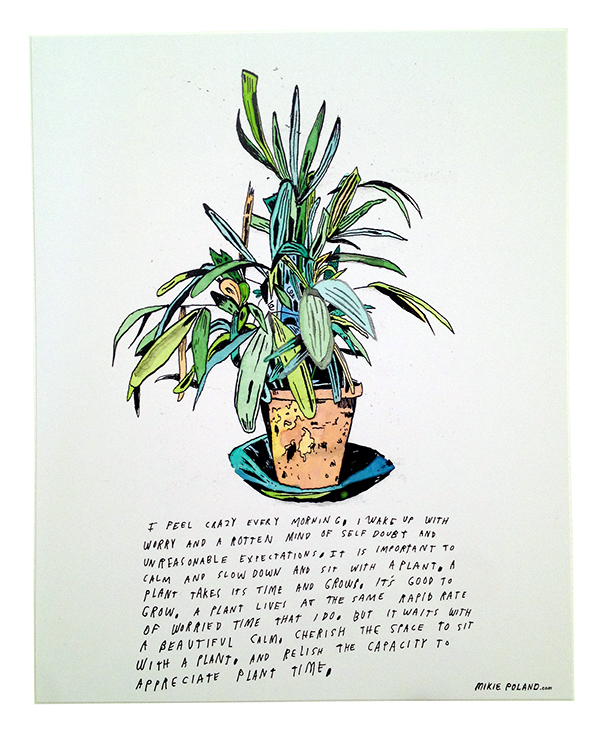 I FEEL CRAZY EVERY MORNING. I WAKE UP WITH
WORRY AND A ROTTEN MIND OF SELF DOUBT AND
UNREASONABLE EXPECTATIONS. IT IS IMPORTANT TO
CALM AND SLOW DOWN AND SIT WITH A PLANT. A
PLANT TAKES ITS TIME AND GROWS. IT'S GOOD TO
GROW. A PLANT LIVES AT THE SAME RAPID RATE
OF WORRIED TIME THAT I DO. BUT IT WAITS WITH
A BEAUTIFUL CALM. CHERISH THE SPACE TO SIT
WITH A PLANT. AND RELISH THE CAPACITY TO
APPRECIATE PLANT TIME.
MIKIE POLAND.com